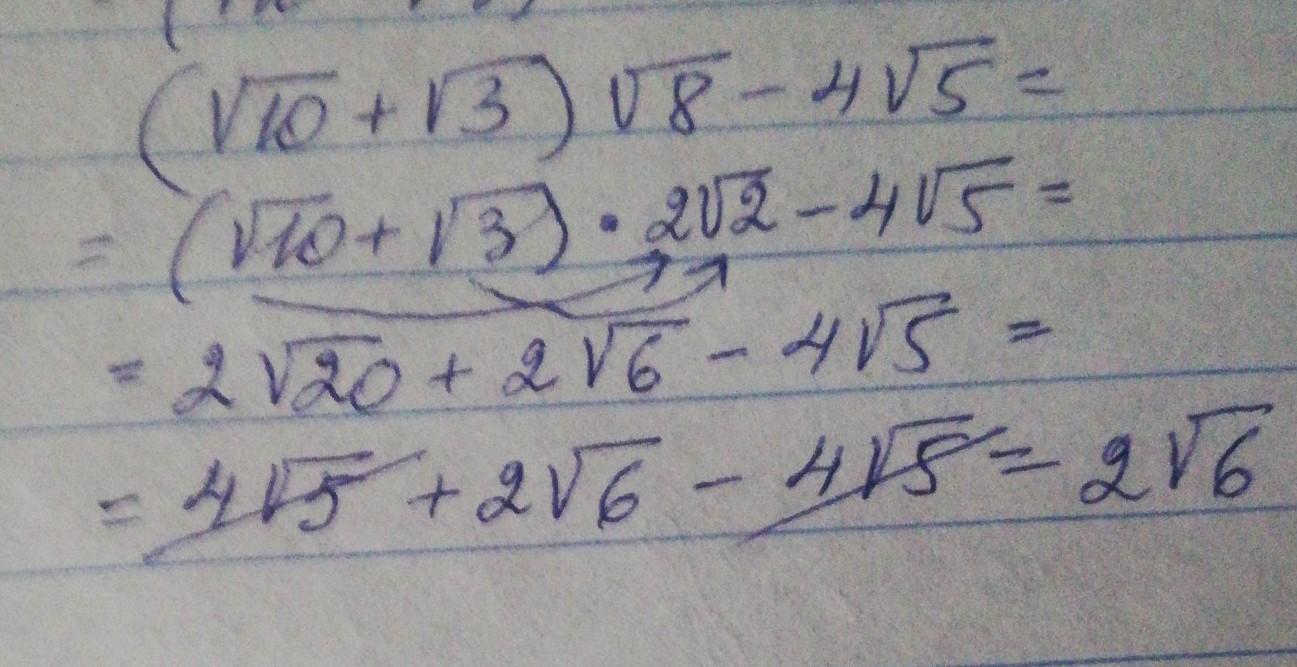 (√10 + √3) √8 - 4√5 =
= (√10 + √3) • 2√2 - 4√5 =
= 2√20 + 2√6 - 4√5 =
= 4√5 + 2√6 - 4√5 = 2√6